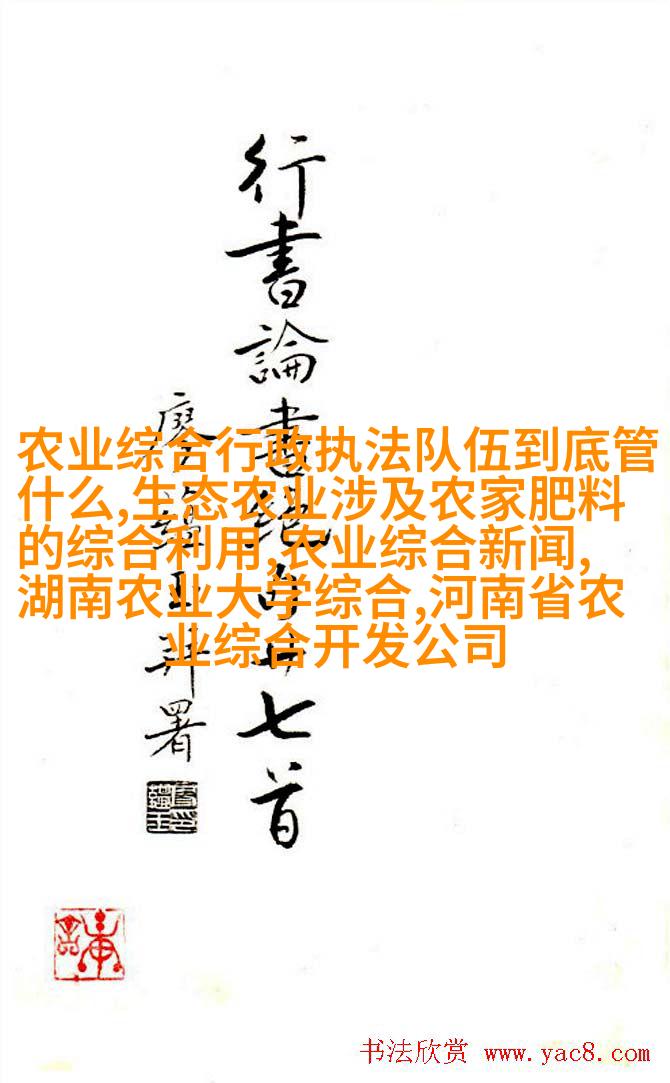 行書論書絶句廿七首
廖蘊玉并署
农业综合行政执法队伍到底管
什么,生态农业涉及农家肥料
的综合利用,农业综合新闻,
湖南农业大学综合,河南省农
业综合开发公司
书法欣赏 www.yac8.com